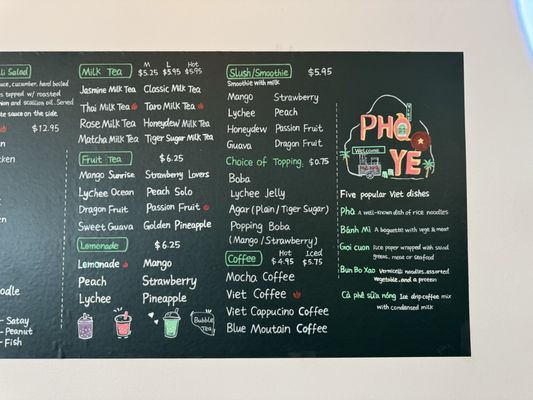 li Salad
uce, cucumber, hard boiled
s topped w/ roasted
nion and scallion oil. Served
te sauce on the side.
$12.95
an
cken
n
oodle
- Satay
- Peanut
- Fish
Milk Tea
M L Hot
$5.25 $5.95 $5.95
Jasmine Milk Tea Classic Milk Tea
Thai Milk Tea Taro Milk Tea
Rose Milk Tea Honeydew Milk Tea
Matcha Milk Tea Tiger Sugar Milk Tea
Fruit Tea $6.25
Mango Sunrise Strawberry Lovers
Lychee Ocean Peach Solo
Dragon Fruit Passion Fruit
Sweet Guava Golden Pineapple
Lemonade $6.25
Lemonade Mango
Peach Strawberry
Lychee Pineapple
Bubble
Tea
Slush/Smoothie $5.95
Smoothie with milk
Mango Strawberry
Lychee Peach
Honeydew Passion Fruit
Guava Dragon Fruit
Choice of Topping $0.75
Boba
Lychee Jelly
Agar (Plain/Tiger Sugar)
Popping Boba
(Mango/Strawberry)
Coffee
Hot Iced
$4.95 $5.75
Mocha Coffee
Viet Coffee
Viet Cappucino Coffee
Blue Moutain Coffee
PHO
Welcome
YE
Five popular Viet dishes
Phở A well-known dish of rice noodles
Bánh Mì A baguette with vege & meat
Goi cuon Rice paper wrapped with salad
greens, meat or seafood
Bun Bo Xao Vermicelli noodles, assorted
vegetable, and a protein
Cà phê sữa nóng Ice drip coffee mix
with condensed milk